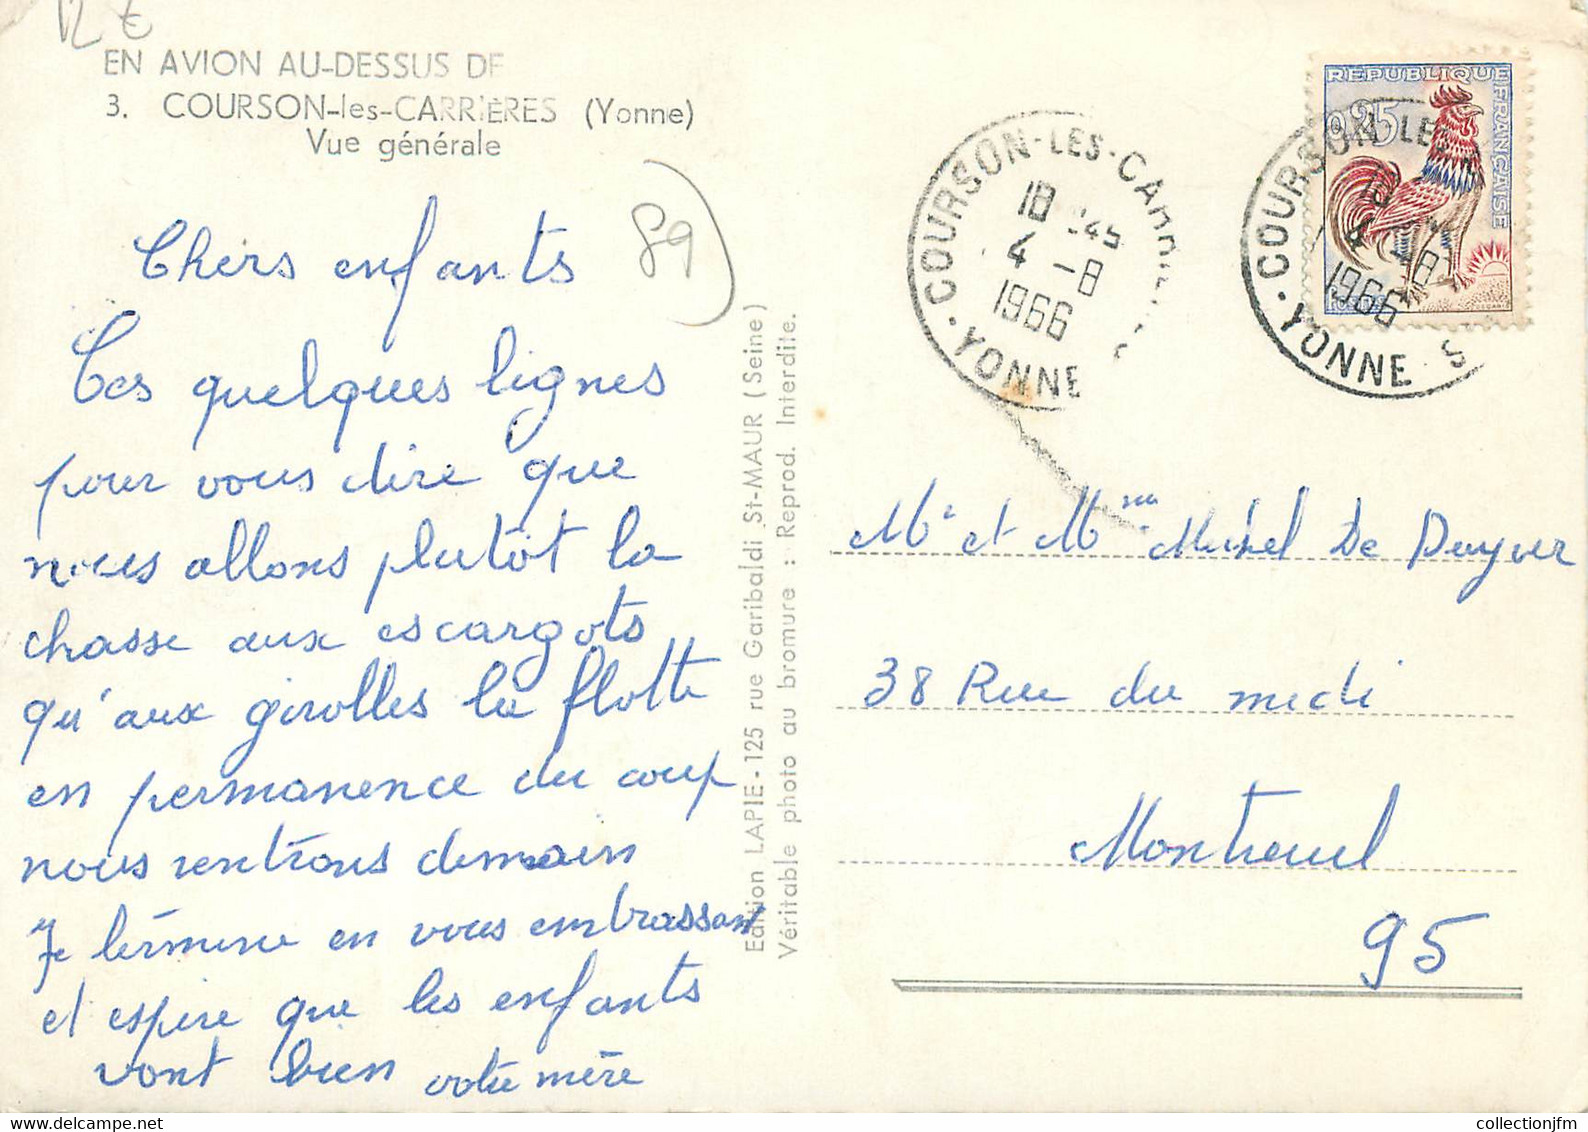 12 €
EN AVION AU-DESSUS DE
3. COURSON-les-CARRIÈRES (Yonne)
Vue générale
89
Chers enfants
Ces quelques lignes
pour vous dire que
nous allons plutôt la
chasse aux escargots
qu'aux girolles la flotte
en permanence du coup
nous rentrons demain
Je termine en vous embrassant
et espère que les enfants
vont bien votre mère
Edition LAPIE - 125 rue Garibaldi St-MAUR (Seine)
Véritable photo au bromure : Reprod. Interdite.
COURSON-LES-CARR
18 45
4 -8
1966
YONNE
REPUBLIQUE FRANÇAISE
0,25
POSTES
COURSON-LES
18
4 -8
1966
YONNE
Mr et Mme Michel De Puyver
38 Rue du midi
Montreuil
95
www.collectionjfm.com